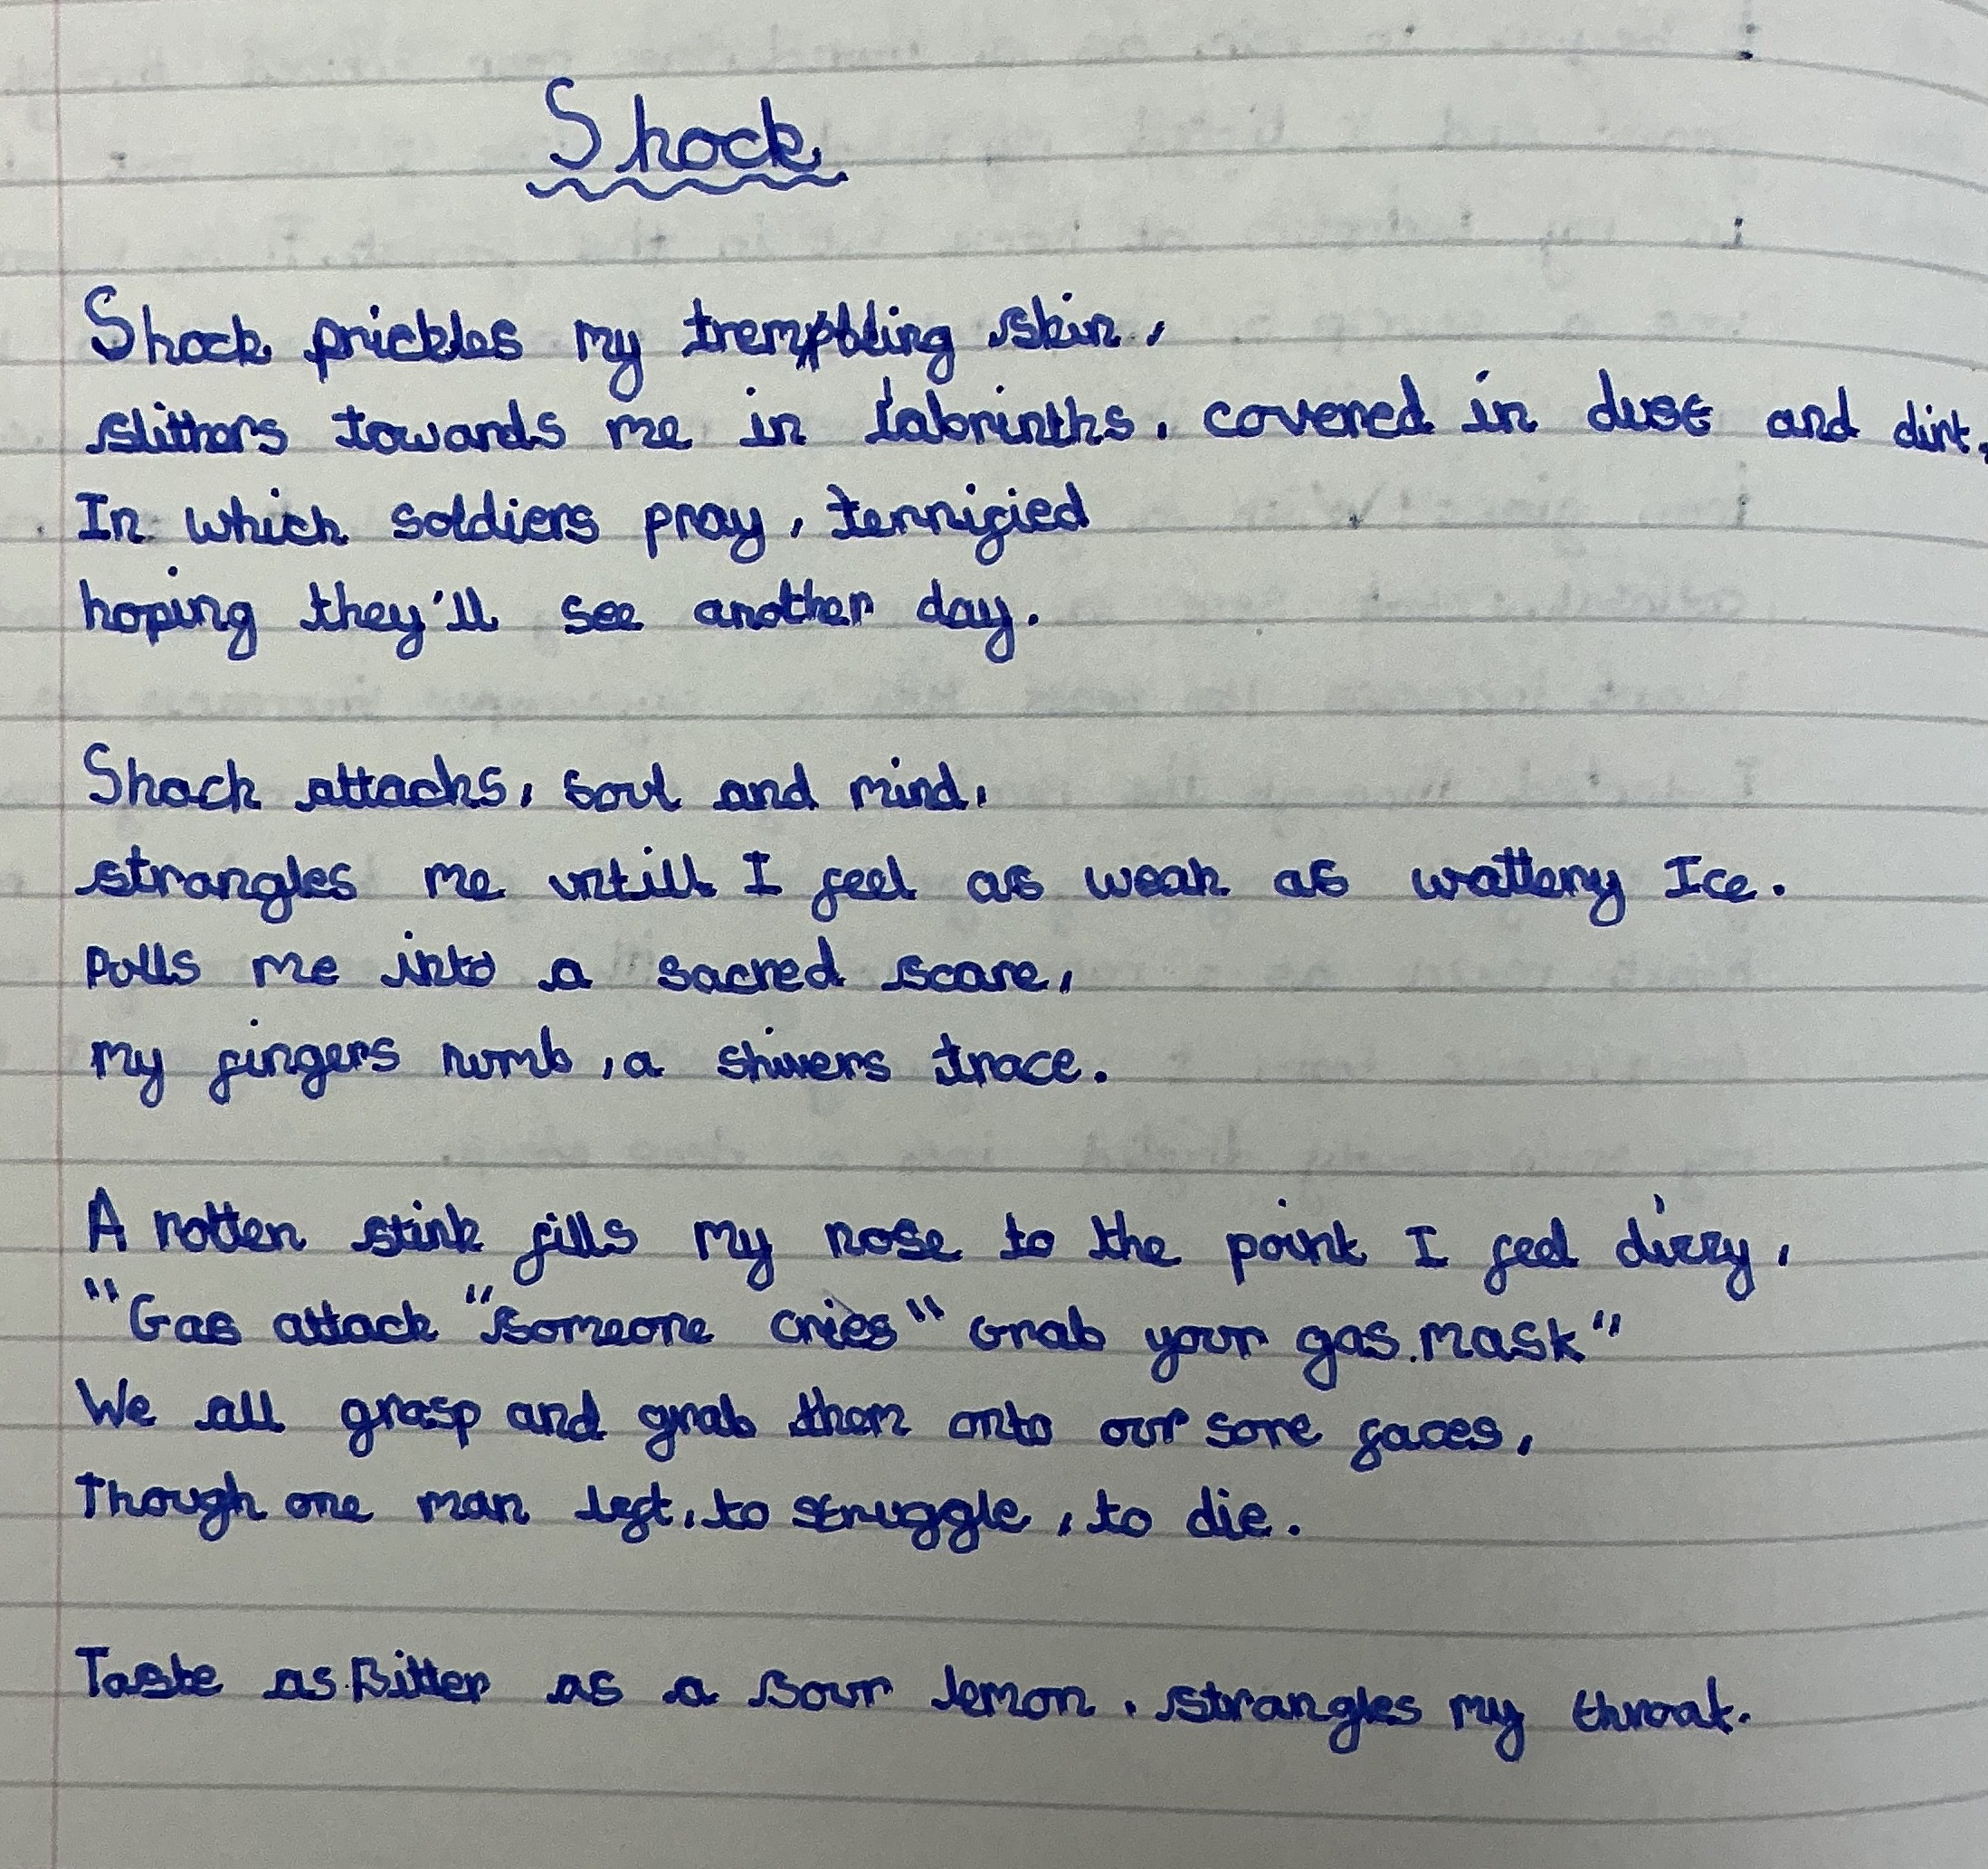 Shock
Shock prickles my trembling skin,
slithers towards me in labrinths, covered in dust and dirt,
In which soldiers pray, terrified
hoping they'll see another day.
Shock attacks, soul and mind,
strangles me untill I feel as weak as wattery Ice.
Pulls me into a sacred scare,
my fingers numb, a shivers trace.
A rotten stink fills my nose to the point I feel dizzy,
"Gas attack "someone cries" Grab your gas mask"
We all grasp and grab them onto our sore faces,
Though one man left, to struggle, to die.
Taste as Bitter as a sour lemon, strangles my throat.